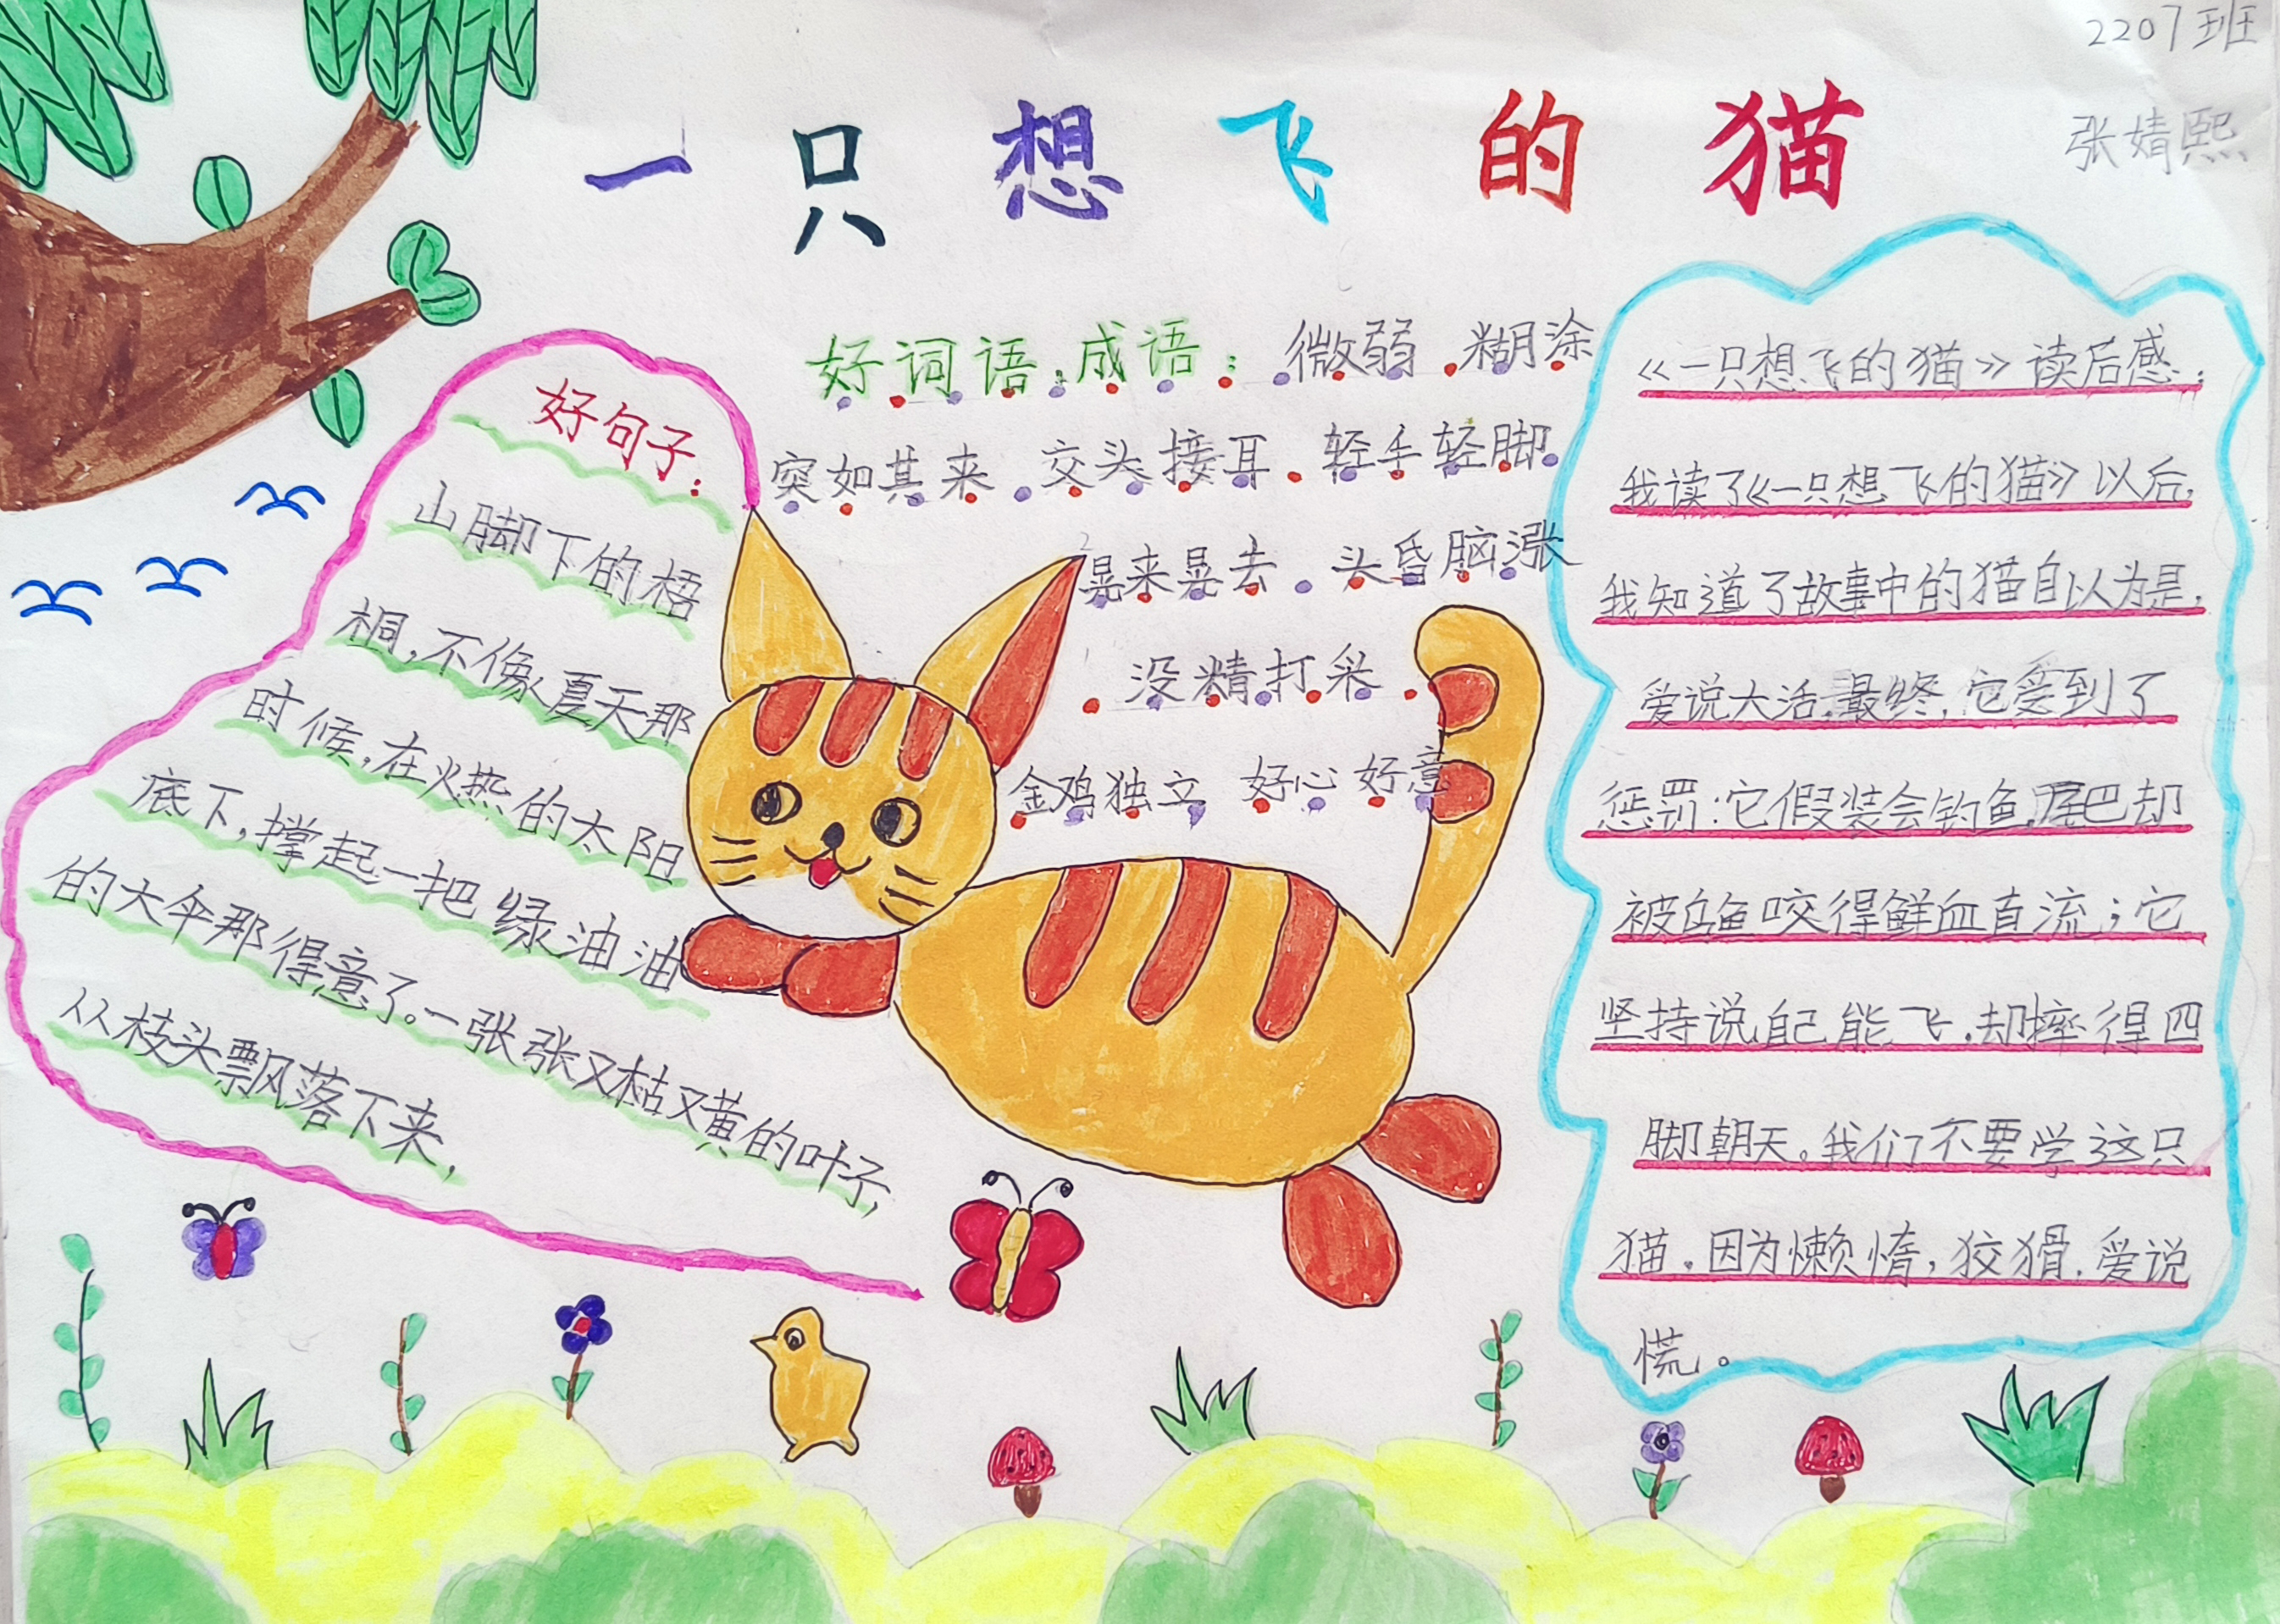 2207班
张婧熙
一只想飞的猫
好句子:
山脚下的梧
桐,不像夏天那
时候,在火热的太阳
底下,撑起一把绿油油
的大伞那得意了。一张张又枯又黄的叶子,
从枝头飘落下来,
好词语,成语: 微弱 糊涂
突如其来 交头接耳 轻手轻脚
晃来晃去 头昏脑涨
没精打采
金鸡独立 好心好意
《一只想飞的猫》读后感:
我读了《一只想飞的猫》以后,
我知道了故事中的猫自以为是,
爱说大活,最终,它受到了
惩罚:它假装会钓鱼,尾巴却
被鱼咬得鲜血直流;它
坚持说自己能飞,却摔得四
脚朝天。我们不要学这只
猫,因为懒惰,狡猾,爱说
慌。